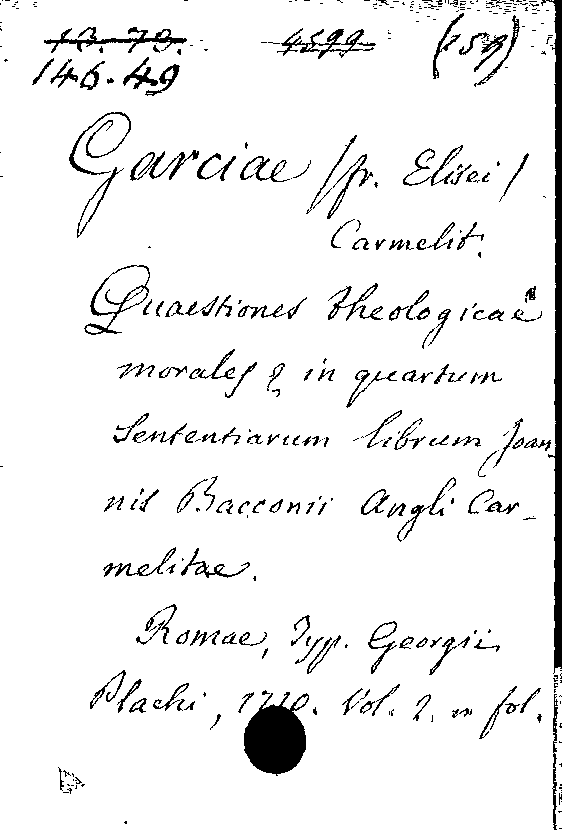 13. 78. 4599 (259)
146.49
Garciae /fr. Elisei/
Carmelit.
Quaestiones theologicae
morales & in quartum
Sententiarum librum Joan-
nis Bacconii Angli Car-
melitae.
Romae, Typ. Georgii
Plachi, 1710. Vol. 2. in fol.